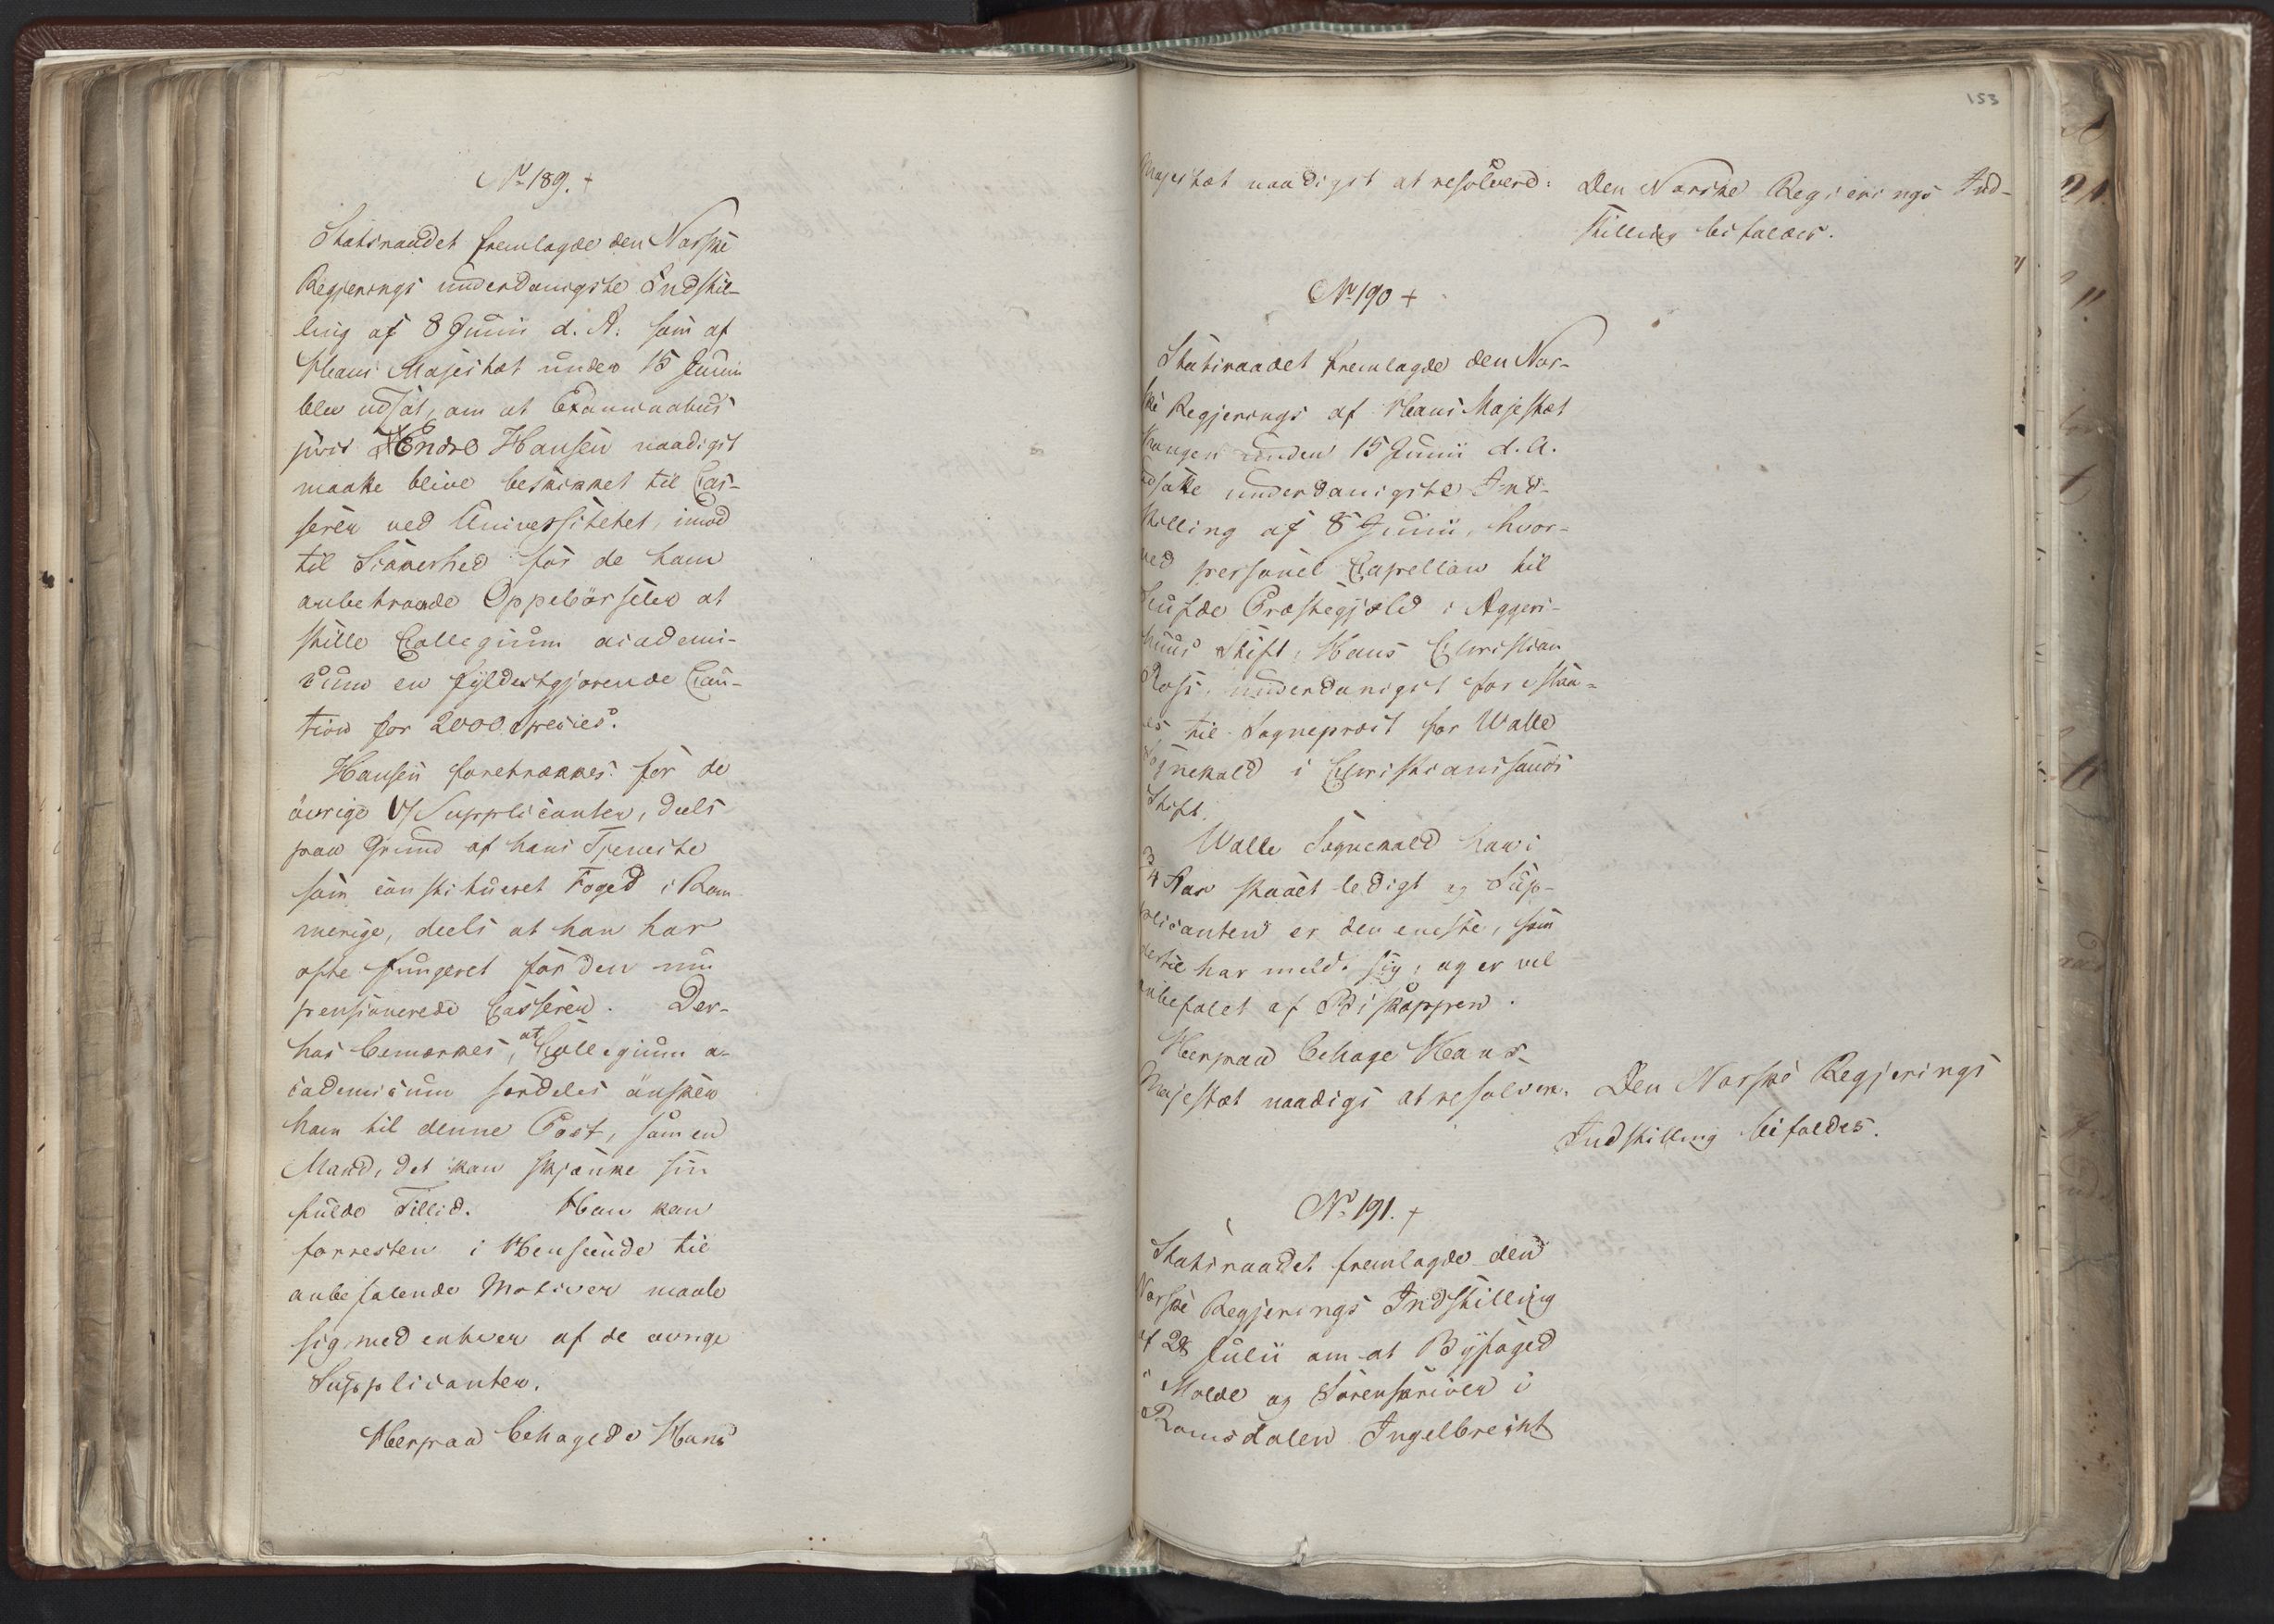 No 189. +
Statsraadet fremlagde den Norske
Regjerings underdanigste Indstil-
ling af 8 Junii d. A. som af
Hans Majestæt under 15 Junii
blev udsat, om at Examinatus
juris Endre Hansen naadigst
maatte blive beskikket til Cas-
serer ved Universitetet, imod
til Sikkerhed for de ham
anbetroede Oppebörsler at
stille Collegium academi-
cum en fyldestgjørende Cau-
tion for 2000 Species.
Hansen foretrækkes for de
øvrige 17 Supplicanter, deels
paa Grund af hans Tjeneste
som constitueret Foged i Rom-
merige, deels at han har
ofte fungeret for den nu
pensionerede Casserer. Der-
hos bemærkes, at Collegium a-
cademicum særdeles ønsker
ham til denne Post, som en
Mand, det kan skjænke sin
fulde Tillid. Han kan
forresten i Henseende til
anbefalende Motiver maale
sig med enhver af de øvrige
Supplicanter.
Herpaa behagede Hans
153
Majestæt naadigst at resolvere: Den Norske Regjerings Ind-
stilling bifaldes.
No 190 +
Statsraadet fremlagde den Nor-
ske Regjerings af Hans Majestæt
Kongen under 15 Junii d. A.
udsatte underdanigste Ind-
stilling af 8 Junii, hvor-
ved personel Capellan til
Præstegjæld i Aggers-
huus Stift, Hans Christian
Ross, underdanigst foreslaa-
es til Sogneprest for Walle
Sognekald i Christianssands
Stift.
Walle Sognekald har i
3/4 Aar staaet ledigt og Sup-
plicanten er den eneste, som
dertil har meldt sig, og er vel
anbefalet af Biskoppen.
Herpaa behage Hans
Majestæt naadigst at resolvere: Den Norske Regjerings
Indstilling bifaldes.
No 191. +
Statsraadet fremlagde den
Norske Regjerings Indstilling
af 28 Julii om at Byfoged
i Molde og Sorenskriver i
Romsdalen Ingelbrecht